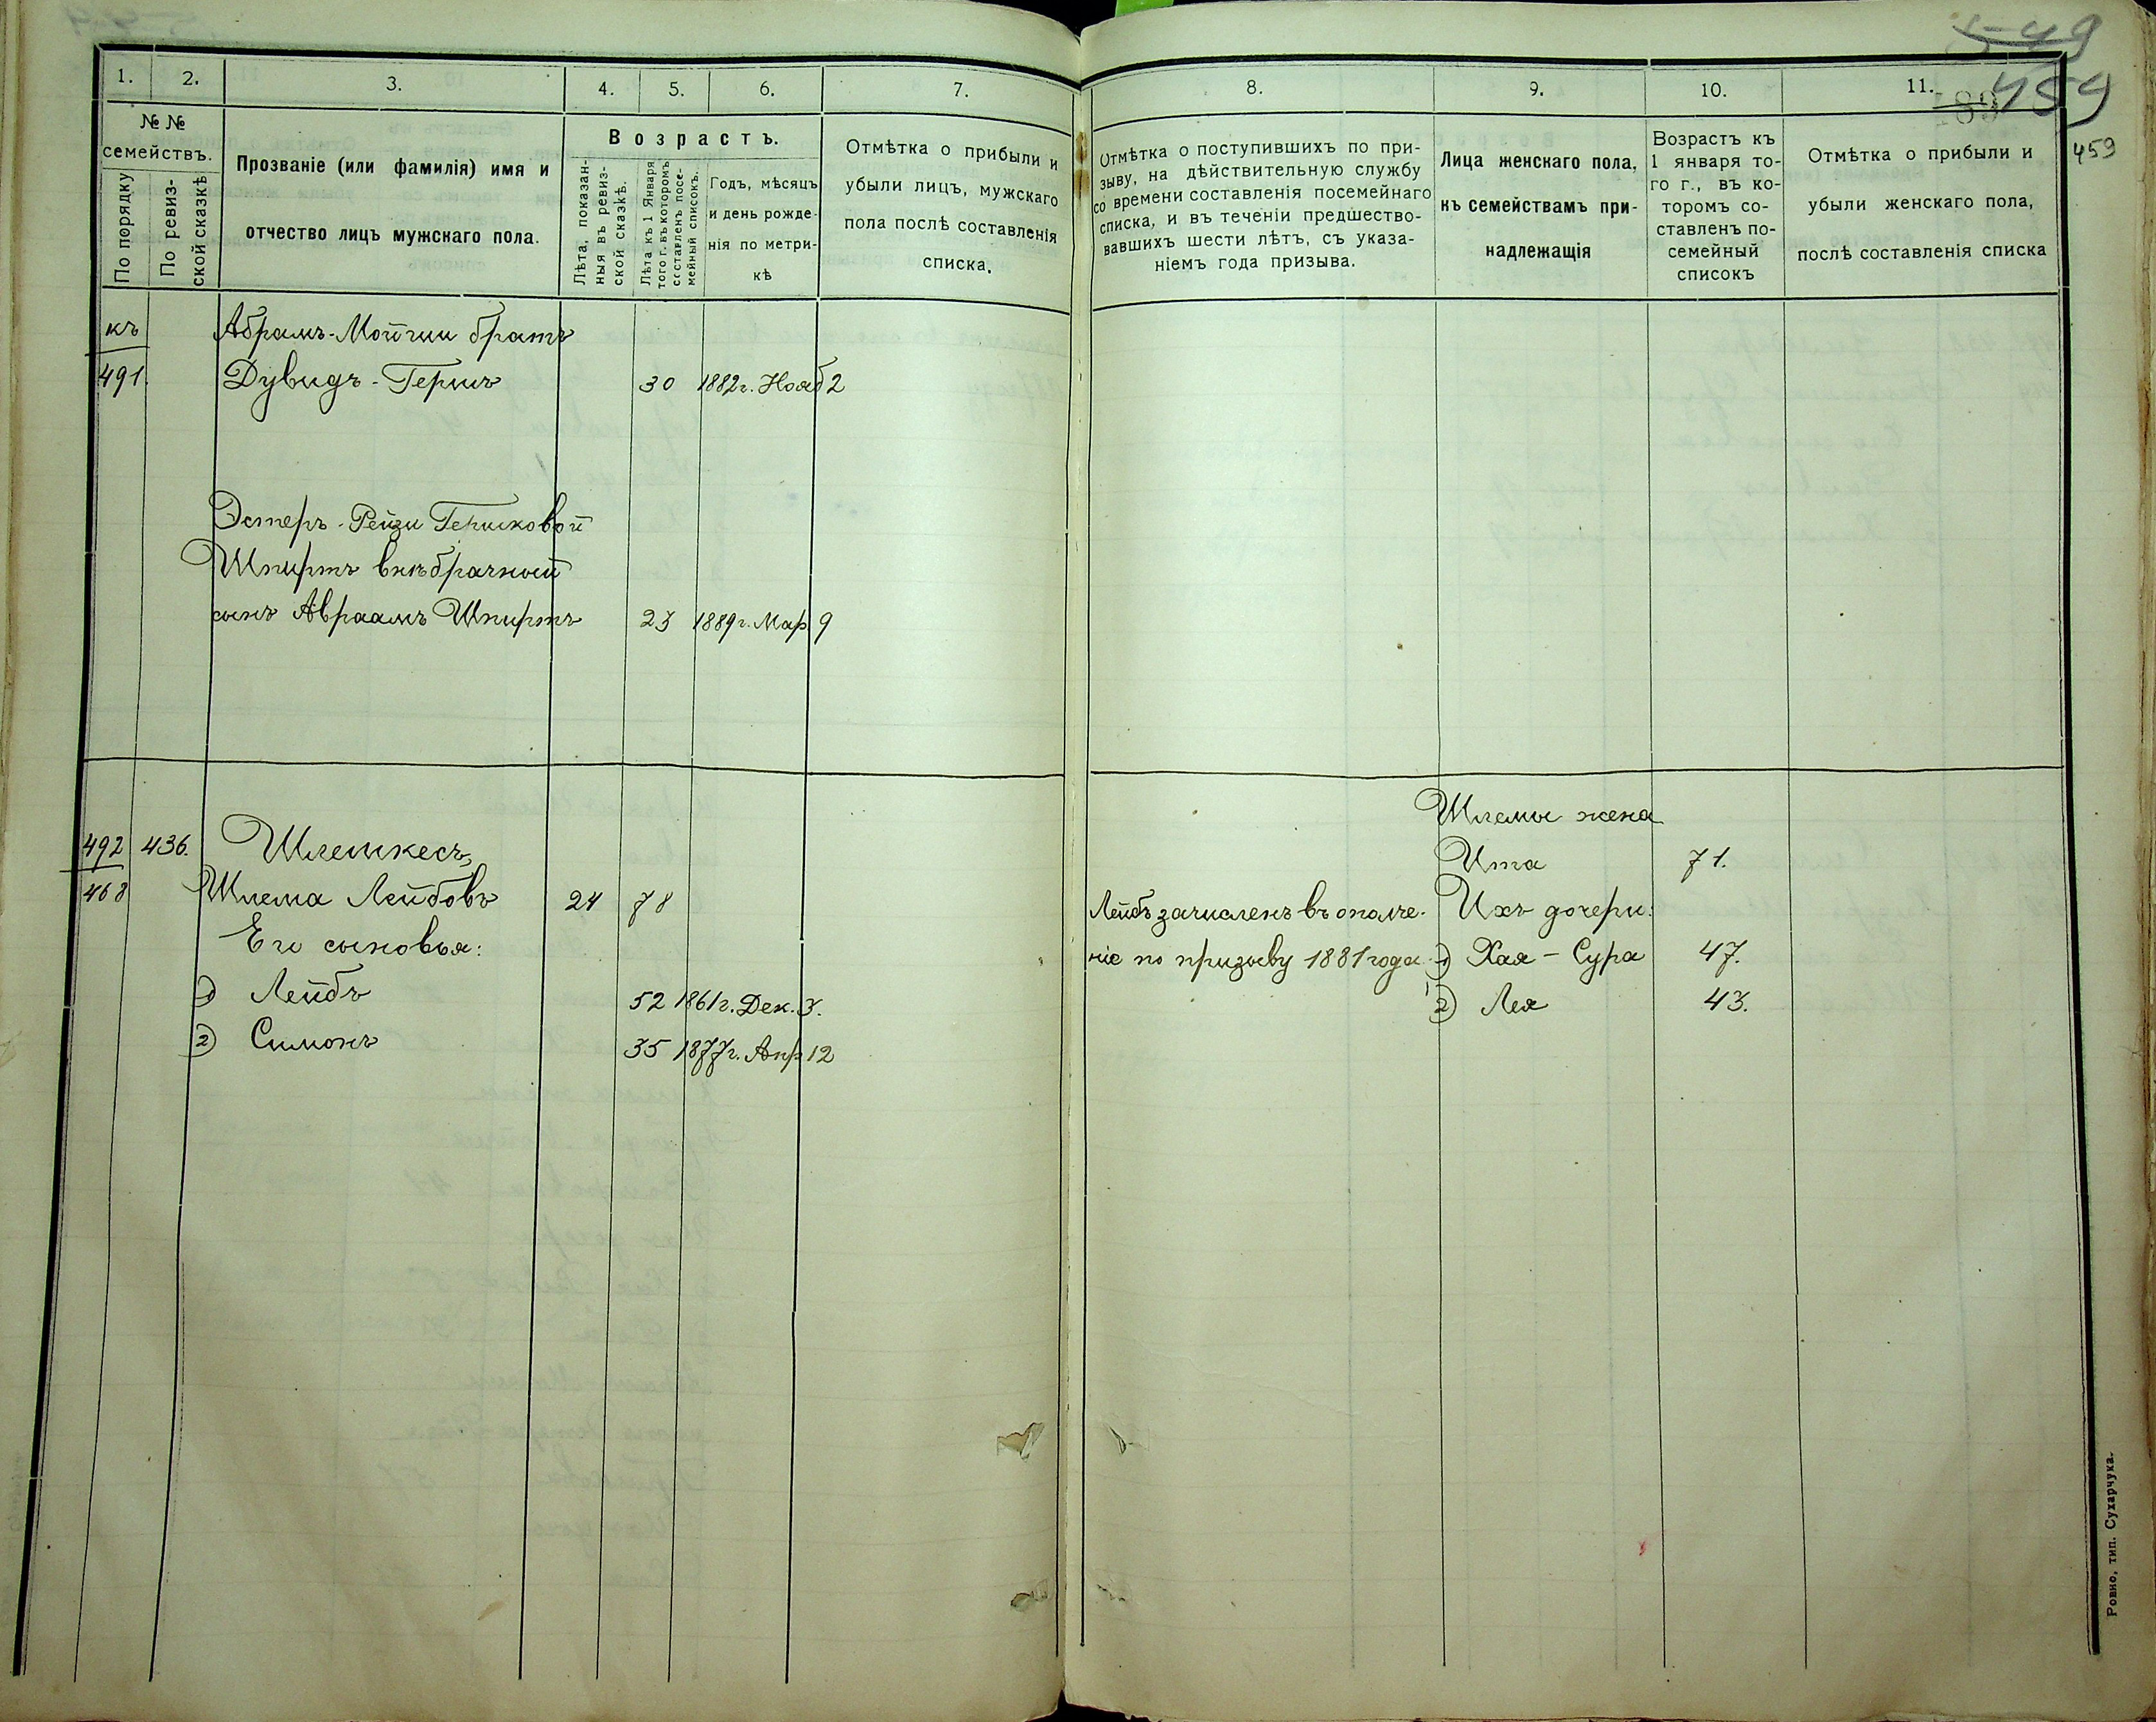 549
459
459
1. 2. 3. 4. 5. 6. 7.
№ №
семействъ.
По порядку
По ревиз-
ской сказкѣ
Прозваніе (или фамилія) имя и
отчество лицъ мужскаго пола.
Возрастъ.
Лѣта, показан-
ныя въ ревиз-
ской сказкѣ.
Лѣта къ 1 Января
того г. въ которомъ
составленъ посе-
мейный списокъ.
Годъ, мѣсяцъ
и день рожде-
нія по метри-
кѣ
Отмѣтка о прибыли и
убыли лицъ, мужскаго
пола послѣ составленія
списка.
къ Абрамъ-Мойши братъ
491. Дувидъ-Гершъ 30 1882г. Нояб 2
Эстеръ-Рейзи Гершковой
Шпиртъ внѣбрачный
сынъ Авраамъ Шпиртъ 23 1889г. Мар 9
492 436. Шлешкесъ,
468 Шлема Лейбовъ 24 78
Его сыновья:
1) Лейбъ 52 1861г. Дек. 3.
2) Симонъ 35 1877г. Апр 12
8. 9. 10. 11.
Отмѣтка о поступившихъ по при-
зыву, на дѣйствительную службу
со времени составленія посемейнаго
списка, и въ теченіи предшество-
вавшихъ шести лѣтъ, съ указа-
ніемъ года призыва.
Лица женскаго пола,
къ семействамъ при-
надлежащія
Возрастъ къ
1 января то-
го г., въ ко-
торомъ со-
ставленъ по-
семейный
списокъ
Отмѣтка о прибыли и
убыли женскаго пола,
послѣ составленія списка
Шлемы жена
Ита 71.
Лейбъ зачисленъ въ ополче- Ихъ дочери:
ніе по призыву 1881 года 1) Хая-Сура 47.
2) Лея 43.
Ровно, тип. Сухарчука.